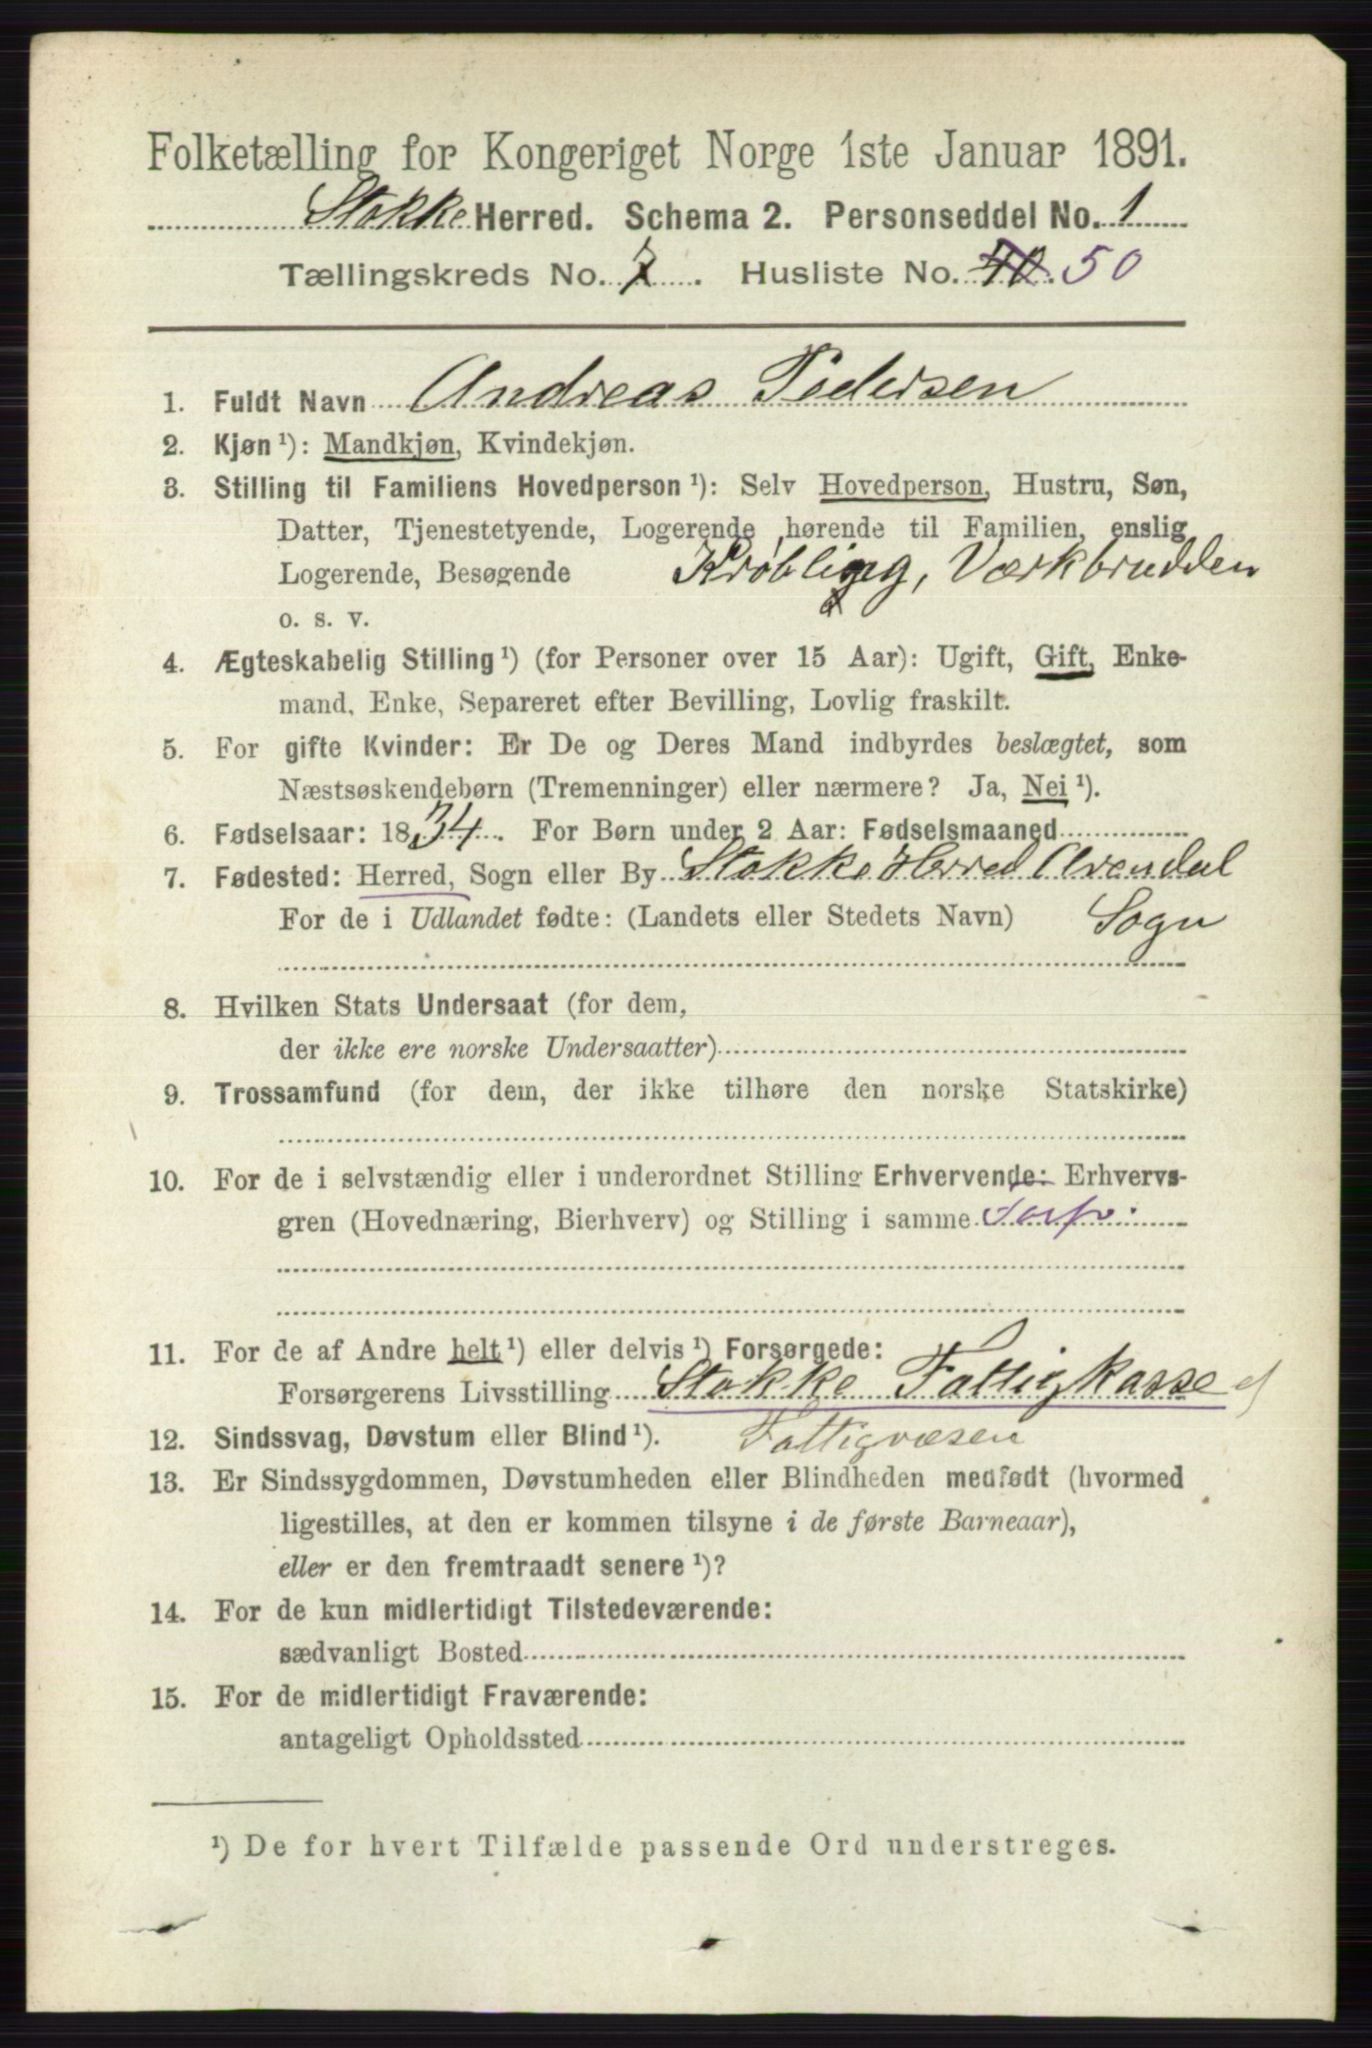 Folketælling for Kongeriget Norge 1ste Januar 1891.
Stokke Herred. Schema 2. Personseddel No. 1
Tællingskreds No. 7. Husliste No. 40. 50
1. Fuldt Navn Andreas Pedersen
2. Kjøn ¹): Mandkjøn, Kvindekjøn.
3. Stilling til Familiens Hovedperson ¹): Selv Hovedperson, Hustru, Søn,
Datter, Tjenestetyende, Logerende hørende til Familien, enslig
Logerende, Besøgende Krøbling, Værkbrudden
o. s. v.
4. Ægteskabelig Stilling ¹) (for Personer over 15 Aar): Ugift, Gift, Enke-
mand, Enke, Separeret efter Bevilling, Lovlig fraskilt.
5. For gifte Kvinder: Er De og Deres Mand indbyrdes beslægtet, som
Næstsøskendebørn (Tremenninger) eller nærmere? Ja, Nei ¹).
6. Fødselsaar: 1834. For Børn under 2 Aar: Fødselsmaaned
7. Fødested: Herred, Sogn eller By Stokke Herred Arendal
For de i Udlandet fødte: (Landets eller Stedets Navn) Sogn
8. Hvilken Stats Undersaat (for dem,
der ikke ere norske Undersaatter)
9. Trossamfund (for dem, der ikke tilhøre den norske Statskirke)
10. For de i selvstændig eller i underordnet Stilling Erhvervende: Erhvervs-
gren (Hovednæring, Bierhverv) og Stilling i samme
11. For de af Andre helt ¹) eller delvis ¹) Forsørgede:
Forsørgerens Livsstilling Stokke Fattigkasse
12. Sindssvag, Døvstum eller Blind ¹). Fattigvæsen
13. Er Sindssygdommen, Døvstumheden eller Blindheden medfødt (hvormed
ligestilles, at den er kommen tilsyne i de første Barneaar),
eller er den fremtraadt senere ¹)?
14. For de kun midlertidigt Tilstedeværende:
sædvanligt Bosted
15. For de midlertidigt Fraværende:
antageligt Opholdssted
¹) De for hvert Tilfælde passende Ord understreges.